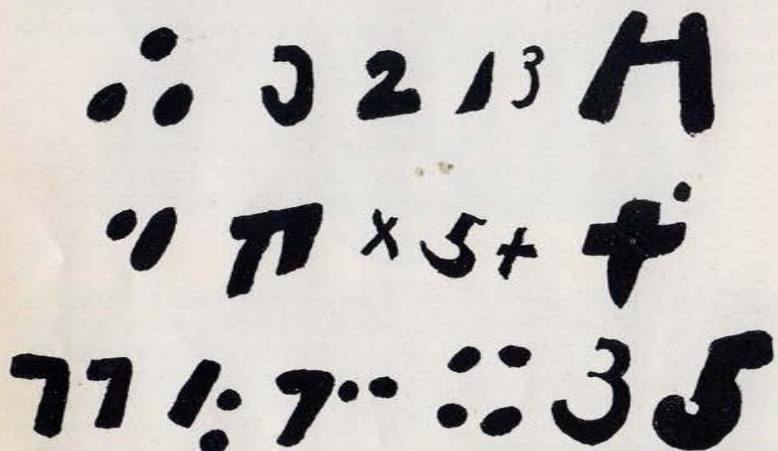 ∴ J 2 1 3 H
π × 5 +
7 7 7 ∷ 3 5